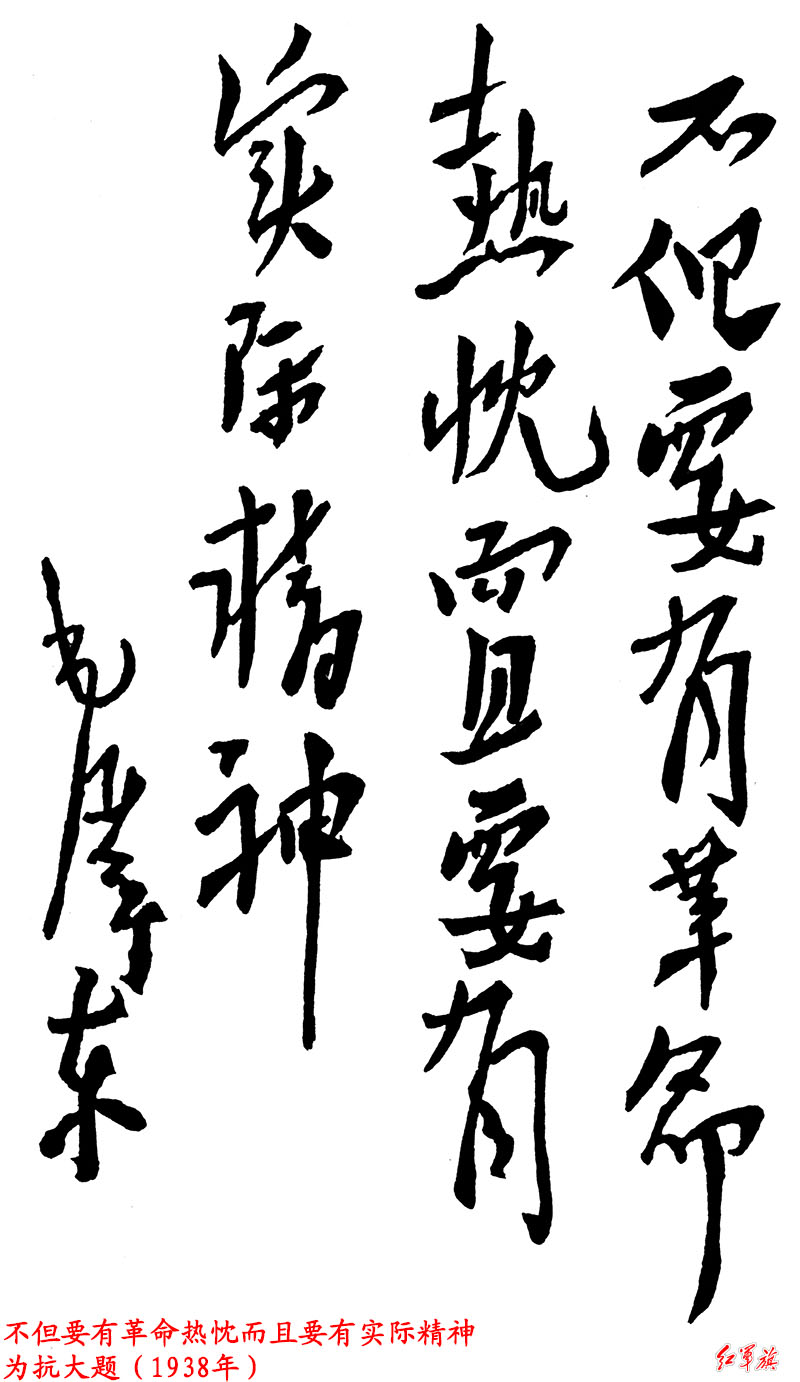 不但要有革命
热忱而且要有
实际精神
毛泽东
不但要有革命热忱而且要有实际精神
为抗大题（1938年）
红军旗